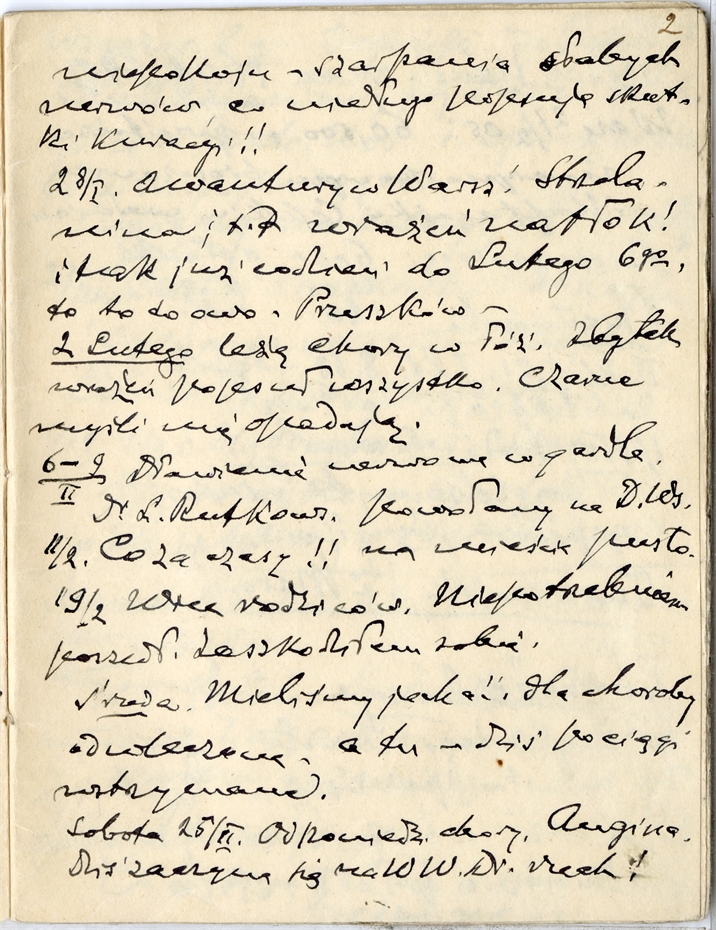 2
niepokoju – szarpania słabych
nerwów co niedługo popsują skut-
ki kuracyi!!
28/I. Awantury w Warsz. Strzela-
nina i t.d. wrażeń natłok!
i tak już codzień do Lutego 6go,
to to to owo – Pruszków –
2 Lutego leżę chory w łóż. Zbytek
wrażeń popsuł wszystko. Czarne
myśli mię opadają.
6–9/II Dławienie nerwowe w gardle.
Dr L. Rutkows. powołany na D. Ws.
11/2. Co za czasy!! na mieście pusto.
19/2 Wiec rodziców. Niepotrzebnie
poszedł. Zaszkodziłem sobie.
Środa. Mieliśmy jechać. dla choroby
odwleczone, a tu – dziś pociągi
wstrzymane.
Sobota 25/II. Od poniedz. chory. Angina.
dziś zaczyna się na W W. Dr. ruch!